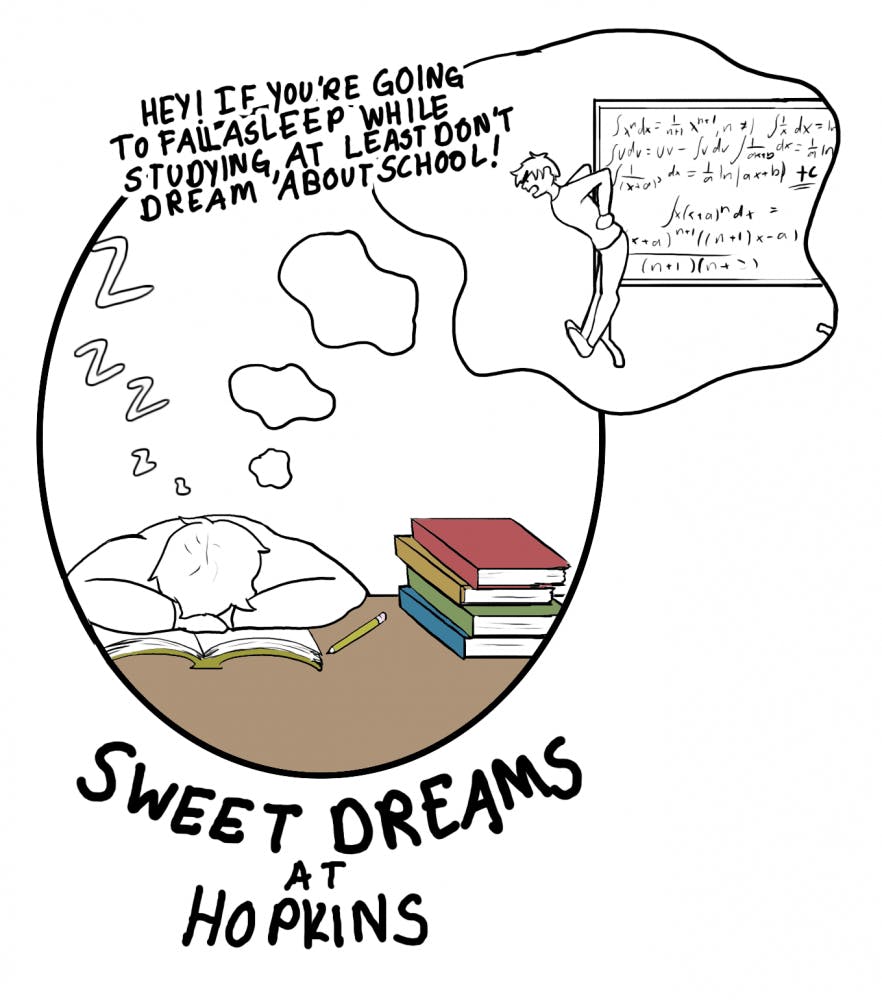 HEY! IF YOU'RE GOING
TO FALL ASLEEP WHILE
STUDYING, AT LEAST DON'T
DREAM ABOUT SCHOOL!
∫xⁿdx = 1/n+1 xⁿ⁺¹, n ≠ 1 ∫1/x dx = ln
∫udv = uv - ∫vdu ∫1/ax+b dx = 1/a ln
∫1/(x+a)² dx = 1/a ln|ax+b| +c
∫x(x+a)ⁿdx =
x+a)ⁿ⁺¹((n+1)x-a)
(n+1)(n+2)
Z
Z
Z
Z
Z
SWEET DREAMS
AT
HOPKINS